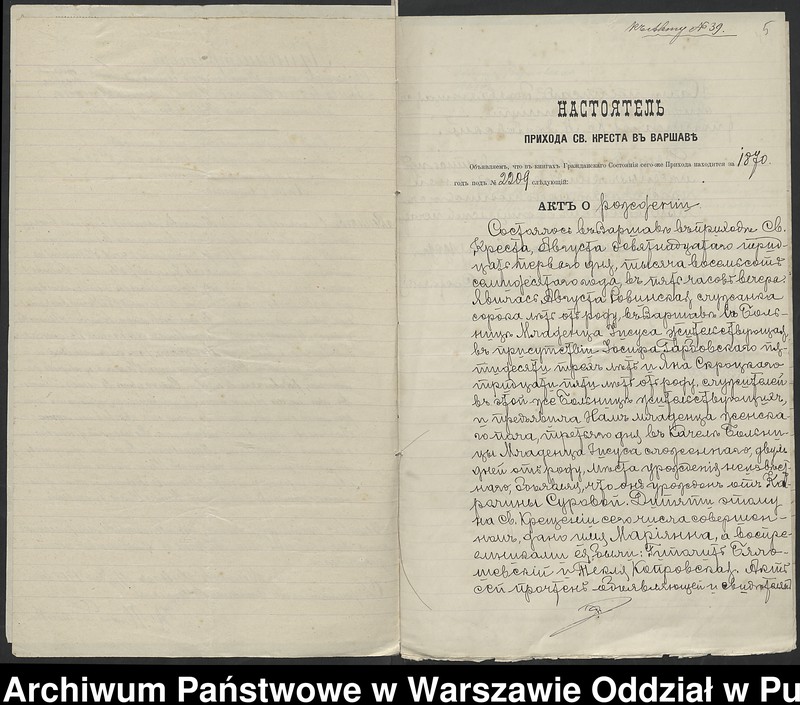 Къ акту № 39.
5
НАСТОЯТЕЛЬ
ПРИХОДА СВ. КРЕСТА ВЪ ВАРШАВѢ
Объявляемъ, что въ книгахъ Гражданскаго Состоянія сего-же Прихода находится за 1870
годъ подъ № 2209 слѣдующій:
АКТЪ О рожденіи
Состоялось въ Варшавѣ въ приходѣ Св.
Креста, Августа девятнадцатаго трид-
цать перваго дня, тысяча восемьсотъ
семидесятаго года, въ пять часовъ вечера.
Явилась Августа Ровинская служанка
сорока лѣтъ отъ роду, въ Варшавѣ въ Боль-
ницѣ Младенца Іисуса жительствующая
въ присутствіи Іосифа Гарковскаго пя-
тидесяти трехъ лѣтъ и Яна Скроцкаго
тридцати пяти лѣтъ отъ роду, служителей
въ этой же Больницѣ жительствующихъ,
и предъявила Намъ младенца женска-
го пола, третьяго дня въ качель Больни-
цы Младенца Іисуса сложеннаго, двухъ
дней отъ роду, мѣста урожденія неизвѣст-
наго, объявляя, что онъ урожденъ отъ Ка-
рачины Суровой. Дитяти этому
на Св. Крещеніи сего числа совершен-
номъ, дано имя Маріянна, а воспрі-
емниками ея были: Гиполитъ Бяло-
шевскій и Текля Копровская. Актъ
сей прочтенъ объявляющей и свидѣтелямъ
Archiwum Państwowe w Warszawie Oddział w Pu